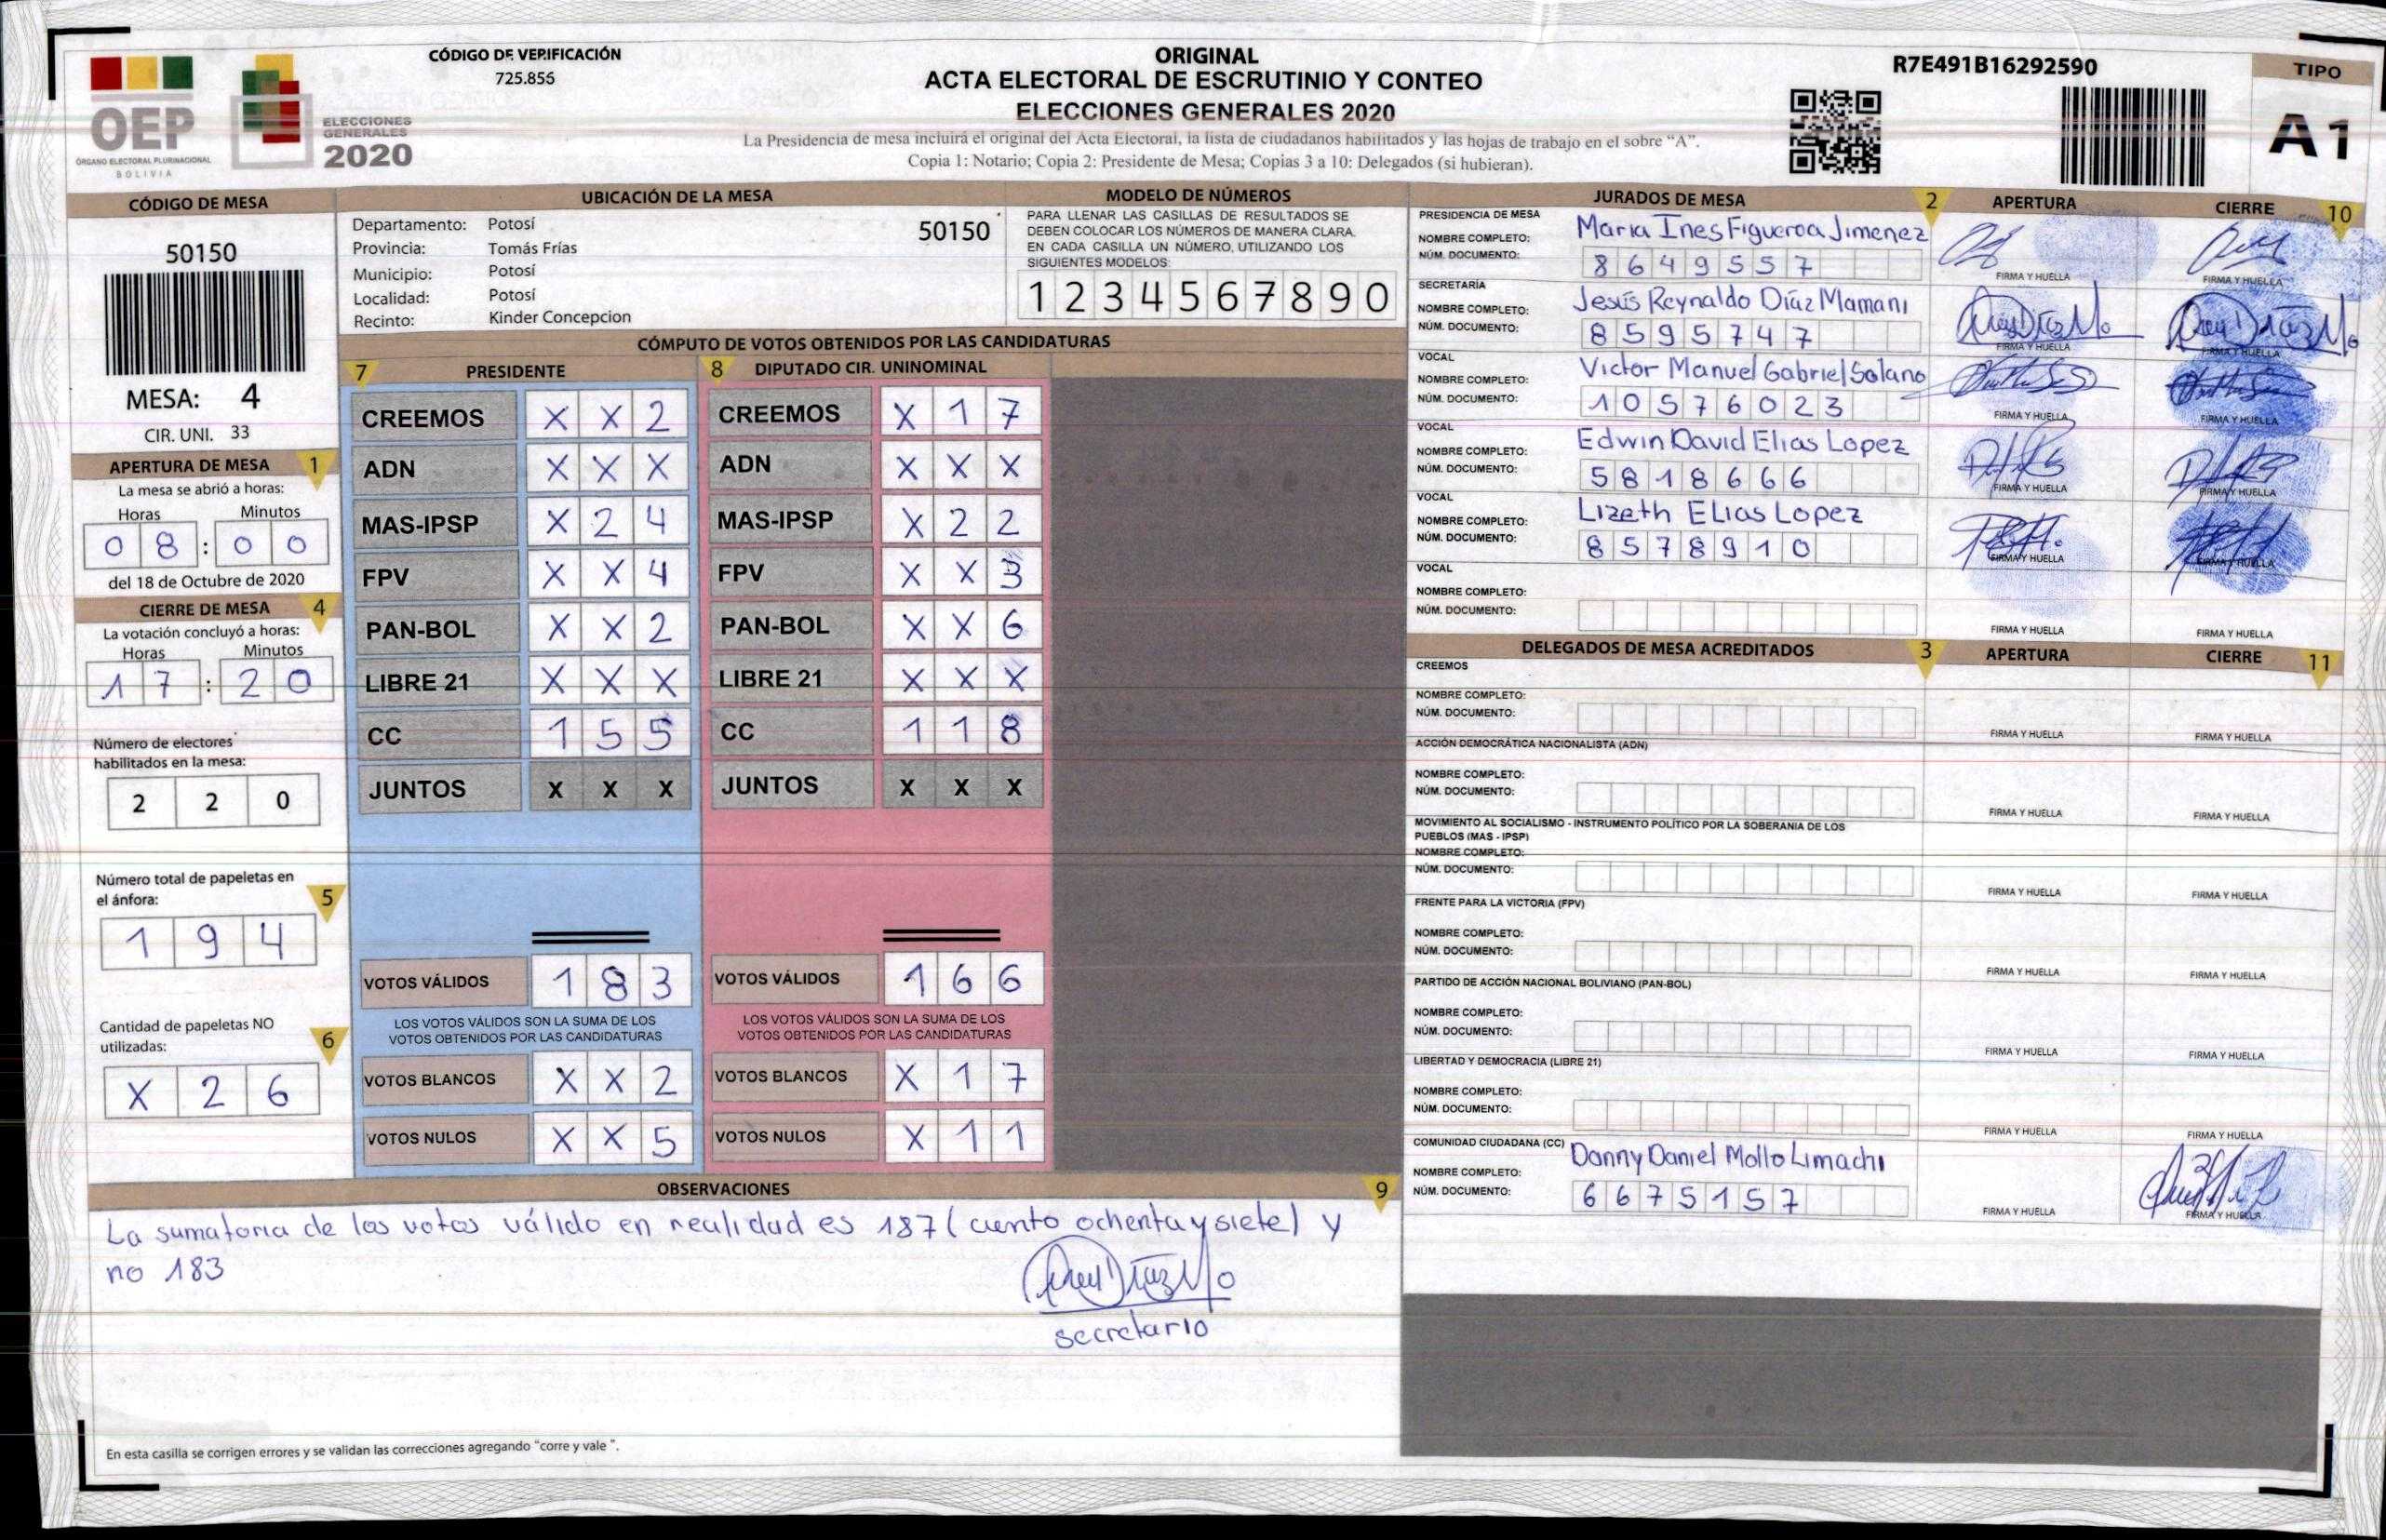 CÓDIGO DE VERIFICACIÓN
725.856
ORIGINAL
ACTA ELECTORAL DE ESCRUTINIO Y CONTEO
ELECCIONES GENERALES 2020
La Presidencia de mesa incluirá el original del Acta Electoral, la lista de ciudadanos habilitados y las hojas de trabajo en el sobre “A”.
Copia 1: Notario; Copia 2: Presidente de Mesa; Copias 3 a 10: Delegados (si hubieran).
R7E491B16292590
TIPO
A1
OEP
ÓRGANO ELECTORAL PLURINACIONAL
BOLIVIA
ELECCIONES
GENERALES
2020
CÓDIGO DE MESA
50150
MESA: 4
CIR. UNI. 33
APERTURA DE MESA 1
La mesa se abrió a horas:
Horas Minutos
0 8 : 0 0
del 18 de Octubre de 2020
CIERRE DE MESA 4
La votación concluyó a horas:
Horas Minutos
1 7 : 2 0
Número de electores
habilitados en la mesa:
2 2 0
Número total de papeletas en
el ánfora: 5
1 9 4
Cantidad de papeletas NO
utilizadas: 6
X 2 6
UBICACIÓN DE LA MESA
Departamento: Potosí 50150
Provincia: Tomás Frías
Municipio: Potosí
Localidad: Potosí
Recinto: Kinder Concepcion
MODELO DE NÚMEROS
PARA LLENAR LAS CASILLAS DE RESULTADOS SE
DEBEN COLOCAR LOS NÚMEROS DE MANERA CLARA.
EN CADA CASILLA UN NÚMERO, UTILIZANDO LOS
SIGUIENTES MODELOS:
1 2 3 4 5 6 7 8 9 0
CÓMPUTO DE VOTOS OBTENIDOS POR LAS CANDIDATURAS
7 PRESIDENTE 8 DIPUTADO CIR. UNINOMINAL
CREEMOS X X 2 CREEMOS X 1 7
ADN X X X ADN X X X
MAS-IPSP X 2 4 MAS-IPSP X 2 2
FPV X X 4 FPV X X 3
PAN-BOL X X 2 PAN-BOL X X 6
LIBRE 21 X X X LIBRE 21 X X X
CC 1 5 5 CC 1 1 8
JUNTOS X X X JUNTOS X X X
VOTOS VÁLIDOS 1 8 3 VOTOS VÁLIDOS 1 6 6
LOS VOTOS VÁLIDOS SON LA SUMA DE LOS LOS VOTOS VÁLIDOS SON LA SUMA DE LOS
VOTOS OBTENIDOS POR LAS CANDIDATURAS VOTOS OBTENIDOS POR LAS CANDIDATURAS
VOTOS BLANCOS X X 2 VOTOS BLANCOS X 1 7
VOTOS NULOS X X 5 VOTOS NULOS X 1 1
OBSERVACIONES 9
La sumatoria de los votos válido en realidad es 187 (ciento ochenta y siete) y
no 183
secretario
En esta casilla se corrigen errores y se validan las correcciones agregando “corre y vale ”.
JURADOS DE MESA 2 APERTURA CIERRE 10
PRESIDENCIA DE MESA
NOMBRE COMPLETO: Maria Ines Figueroa Jimenez
NÚM. DOCUMENTO: 8 6 4 9 5 5 7
FIRMA Y HUELLA FIRMA Y HUELLA
SECRETARÍA
NOMBRE COMPLETO: Jesús Reynaldo Díaz Mamani
NÚM. DOCUMENTO: 8 5 9 5 7 4 7
FIRMA Y HUELLA FIRMA Y HUELLA
VOCAL
NOMBRE COMPLETO: Victor Manuel Gabriel Solano
NÚM. DOCUMENTO: 1 0 5 7 6 0 2 3
FIRMA Y HUELLA FIRMA Y HUELLA
VOCAL
NOMBRE COMPLETO: Edwin David Elias Lopez
NÚM. DOCUMENTO: 5 8 1 8 6 6 6
FIRMA Y HUELLA FIRMA Y HUELLA
VOCAL
NOMBRE COMPLETO: Lizeth Elias Lopez
NÚM. DOCUMENTO: 8 5 7 8 9 1 0
FIRMA Y HUELLA FIRMA Y HUELLA
VOCAL
NOMBRE COMPLETO:
NÚM. DOCUMENTO:
FIRMA Y HUELLA FIRMA Y HUELLA
DELEGADOS DE MESA ACREDITADOS 3 APERTURA CIERRE 11
CREEMOS
NOMBRE COMPLETO:
NÚM. DOCUMENTO:
FIRMA Y HUELLA FIRMA Y HUELLA
ACCIÓN DEMOCRÁTICA NACIONALISTA (ADN)
NOMBRE COMPLETO:
NÚM. DOCUMENTO:
FIRMA Y HUELLA FIRMA Y HUELLA
MOVIMIENTO AL SOCIALISMO - INSTRUMENTO POLÍTICO POR LA SOBERANIA DE LOS
PUEBLOS (MAS - IPSP)
NOMBRE COMPLETO:
NÚM. DOCUMENTO:
FIRMA Y HUELLA FIRMA Y HUELLA
FRENTE PARA LA VICTORIA (FPV)
NOMBRE COMPLETO:
NÚM. DOCUMENTO:
FIRMA Y HUELLA FIRMA Y HUELLA
PARTIDO DE ACCIÓN NACIONAL BOLIVIANO (PAN-BOL)
NOMBRE COMPLETO:
NÚM. DOCUMENTO:
FIRMA Y HUELLA FIRMA Y HUELLA
LIBERTAD Y DEMOCRACIA (LIBRE 21)
NOMBRE COMPLETO:
NÚM. DOCUMENTO:
FIRMA Y HUELLA FIRMA Y HUELLA
COMUNIDAD CIUDADANA (CC)
NOMBRE COMPLETO: Danny Daniel Mollo Limachi
NÚM. DOCUMENTO: 6 6 7 5 1 5 7
FIRMA Y HUELLA FIRMA Y HUELLA